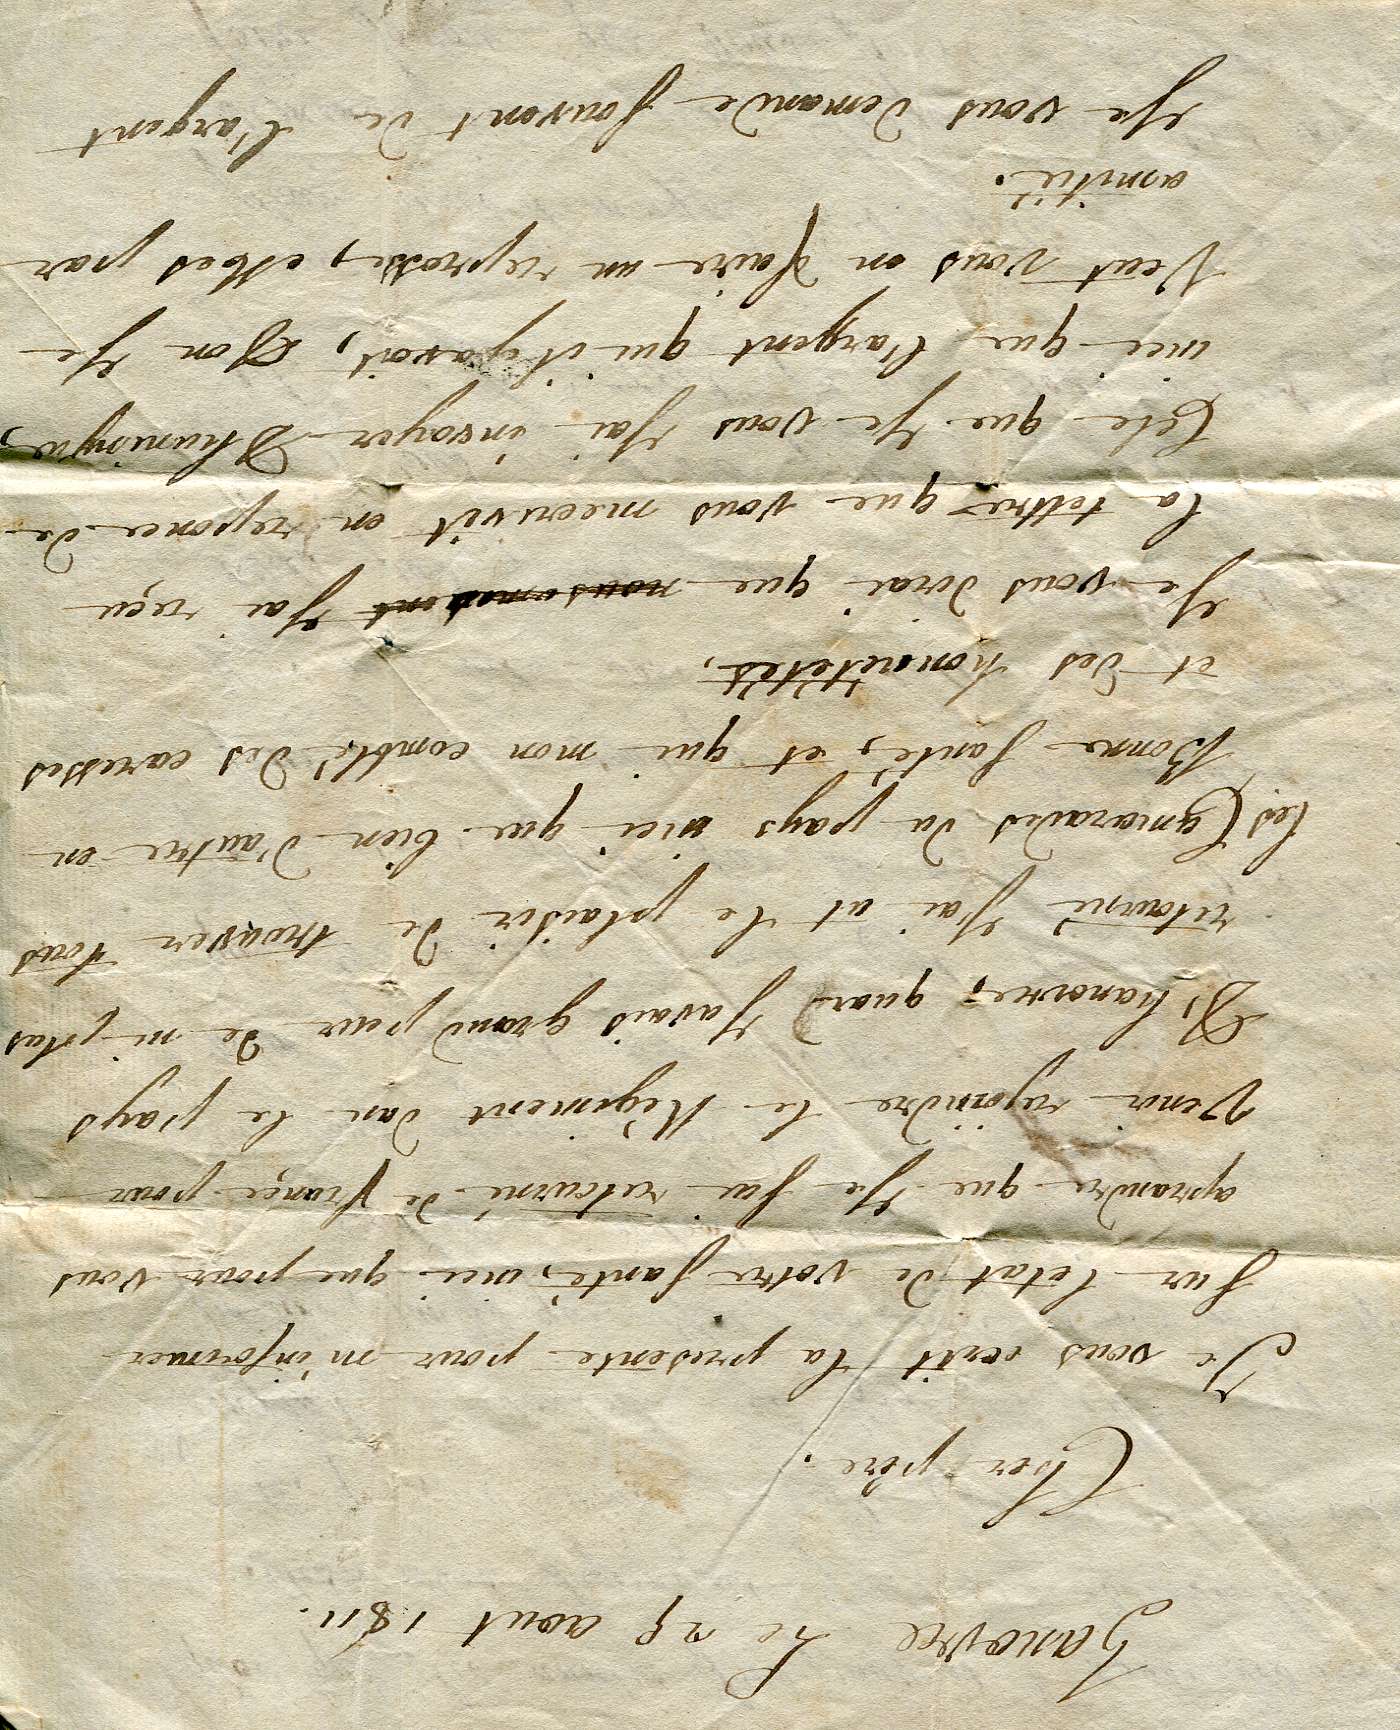 hanovre Le 29 aout 1811.
Cher père.
Je vous ecrit la presente pour m'informer
Sur letat de votre Santé, inci que pour vous
aprandre que Je Sui retourné de france pour
Venir rejoindre le Régiment dan le pays
D'hanovre, quand Javais grand peur de ni plus
retourné Jai ut le plaisir de trouver tous
les Camarades du pays inci que bien d'autre en
Bonne Santé, et qui mon comblé des caresses
et des honnététés,
Je vous dirai que Jai reçu
la lettre que vous mecrivit en reponce de
Cele que Je vous Jai invoyer Dhuningue,
inci que l'argent qui il yavoit, Don Je
Veut vous en faire un reprosse, mes par
amitié.
Je vous demande Souvent de l'argent